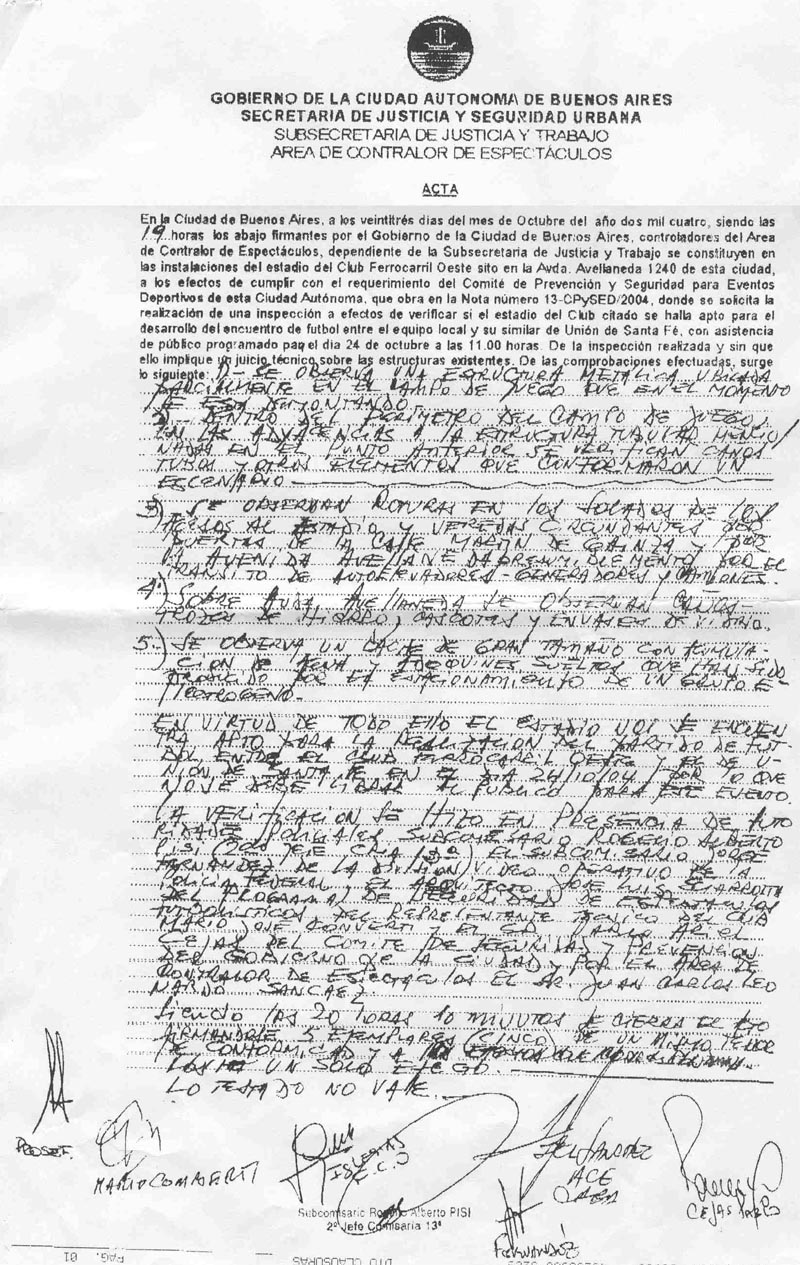 GOBIERNO DE LA CIUDAD AUTONOMA DE BUENOS AIRES
SECRETARIA DE JUSTICIA Y SEGURIDAD URBANA
SUBSECRETARIA DE JUSTICIA Y TRABAJO
AREA DE CONTRALOR DE ESPECTÁCULOS
ACTA
En la Ciudad de Buenos Aires, a los veintitrés días del mes de Octubre del año dos mil cuatro, siendo las
19 horas los abajo firmantes por el Gobierno de la Ciudad de Buenos Aires, controladores del Area
de Contralor de Espectáculos, dependiente de la Subsecretaria de Justicia y Trabajo se constituyen en
las instalaciones del estadio del Club Ferrocarril Oeste sito en la Avda. Avellaneda 1240 de esta ciudad,
a los efectos de cumplir con el requerimiento del Comité de Prevención y Seguridad para Eventos
Deportivos de esta Ciudad Autónoma, que obra en la Nota número 13-CPySED/2004, donde se solicita la
realización de una inspección a efectos de verificar si el estadio del Club citado se halla apto para el
desarrollo del encuentro de futbol entre el equipo local y su similar de Unión de Santa Fé, con asistencia
de público programado para el día 24 de octubre a las 11.00 horas. De la inspección realizada y sin que
ello implique un juicio técnico sobre las estructuras existentes. De las comprobaciones efectuadas, surge
lo siguiente: 1)- SE OBSERVA UNA ESTRUCTURA METALICA UBICADA
PARCIALMENTE EN EL CAMPO DE JUEGO QUE EN EL MOMENTO
SE ESTA DESMONTANDO.
2)- DENTRO DEL PERIMETRO DEL CAMPO DE JUEGO,
EN LAS ADYACENCIAS A LA ESTRUCTURA TUBULAR MENCIO
NADA EN EL PUNTO ANTERIOR SE VERIFICAN CAÑOS
TUBOS Y OTROS ELEMENTOS QUE CONFORMARON UN
ESCENARIO
3)- SE OBSERVAN ROTURAS EN LOS SOLADOS DE LOS
ACCESOS AL ESTADIO Y VEREDAS CIRCUNDANTES
PUERTAS DE LA CALLE MARTIN DE GAINZA Y POR
LA AVENIDA AVELLANEDA POR EL
TRANSITO DE AUTOELEVADORES - GENERADORES Y CAMIONES.
4) SOBRE AVDA. AVELLANEDA SE OBSERVAN CAÑOS
TROZOS DE HIERRO, CASCOTES Y ENVASES DE VIDRIO.
5) SE OBSERVA UN BACHE DE GRAN TAMAÑO CON ACUMULA-
CION DE AGUA Y ADOQUINES SUELTOS QUE HAN SIDO
PRODUCIDO POR EL ESTACIONAMIENTO DE UN GRUPO E-
LECTROGENO.
EN VIRTUD DE TODO ELLO EL ESTADIO NO SE ENCUEN
TRA APTO PARA LA REALIZACION DEL PARTIDO DE FUT-
BOL ENTRE EL CLUB FERROCARRIL OESTE Y EL DE U-
NION DE SANTA FE EN EL DIA 24/10/04 POR LO QUE
NO SE DEBE LIBRAR AL PUBLICO PARA ESTE EVENTO.
LA VERIFICACION SE HIZO EN PRESENCIA DE AUTO
RIDADES POLICIALES SUBCOMISARIO ROGELIO ALBERTO
PISI (2DO JEFE CRIA 13ª) EL SUBCOMISARIO JORGE
FERNANDEZ DE LA DIVISION VIDEO OPERATIVO DE LA
POLICIA FEDERAL, EL ARQUITECTO JOSE LUIS
DEL PROGRAMA DE SEGURIDAD DE ESPECTACULOS
FUTBOLISTICOS DEL REPRESENTANTE TECNICO DEL CLUB
MARIO CONVERTI Y EL PABLO ARIEL
CEJAS DEL COMITE DE SEGURIDAD Y PREVENCION
DEL GOBIERNO DE LA CIUDAD Y POR EL AREA DE
CONTRALOR DE ESPECTACULOS EL SR. JUAN CARLOS LEO
NARDO SANCHEZ.
SIENDO LAS 20 HORAS 10 MINUTOS SE CIERRA EL ACTO
ARMANDOSE 5 EJEMPLARES (CINCO) DE UN MISMO TENOR
DE CONFORMIDAD Y A
UN SOLO EFECTO.
LO TESTADO NO VALE.
PROSEF.
MARIO CONVERTI
IGLESIAS
SANCHEZ
ACE
CEJAS PABLO
Subcomisario Rogelio Alberto PISI
2º Jefe Comisaria 13ª
FERNANDEZ
DTO CLAUSURAS
PAG. 01